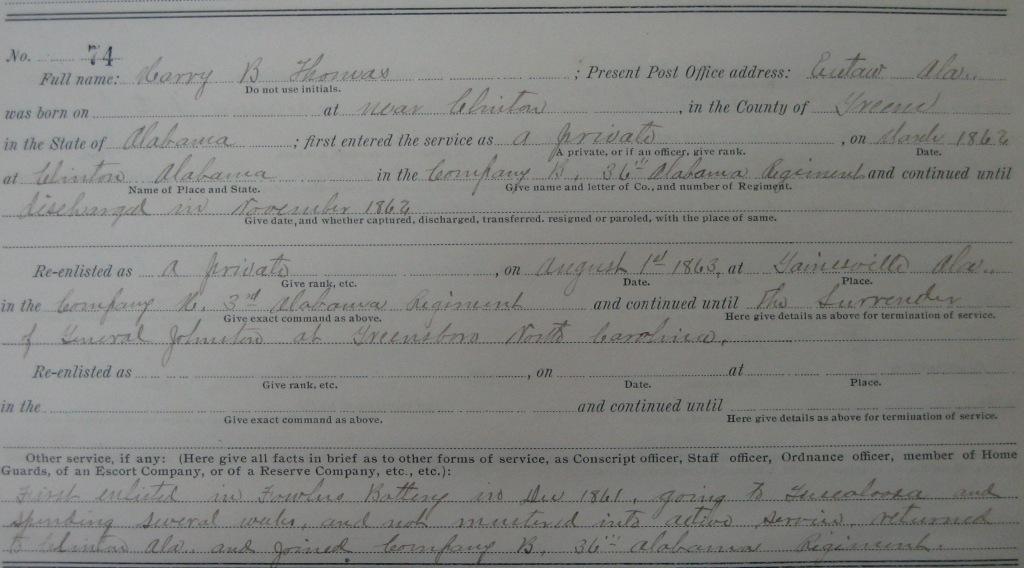 No. 74
Full name: Harry B Thomas ; Present Post Office address: Eutaw Ala.
Do not use initials.
was born on at near Clinton , in the County of Greene
in the State of Alabama ; first entered the service as a private , on March 1862
A private, or if an officer, give rank. Date.
at Clinton Alabama in the Company B, 36th Alabama Regiment and continued until
Name of Place and State. Give name and letter of Co., and number of Regiment.
discharged in November 1862
Give date, and whether captured, discharged, transferred, resigned or paroled, with the place of same.
Re-enlisted as a private , on August 1st 1863, at Gainesville Ala.
Give rank, etc. Date. Place.
in the Company 3rd Alabama Regiment and continued until The Surrender
Give exact command as above. Here give details as above for termination of service.
of General Johnston at Greensboro North Carolina.
Re-enlisted as , on at
Give rank, etc. Date. Place.
in the and continued until
Give exact command as above. Here give details as above for termination of service.
Other service, if any: (Here give all facts in brief as to other forms of service, as Conscript officer, Staff officer, Ordnance officer, member of Home
Guards, of an Escort Company, or of a Reserve Company, etc., etc.):
First enlisted in Fowlers Battery in Dec 1861, going to Tuscaloosa and
spending several weeks, and not mustered into active service, returned
to Clinton Ala. and joined Company B, 36th Alabama Regiment.